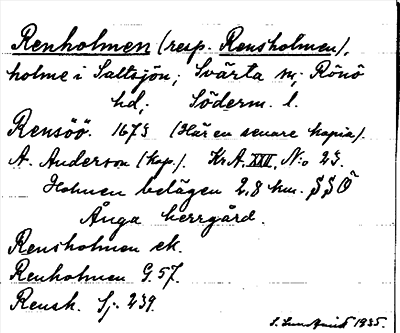 Renholmen (resp. Rensholmen),
holme i Saltsjön; Svärta sn; Rönö
hd; Söderm. l.
Rensöö. 1673 (Här en senare kopia).
A. Anderson (kop.). Kr.A. XXII, N:o 23.
Holmen belägen 2,8 km. SSÖ
Ånga herrgård.
Rensholmen ek.
Renholmen G. 57.
Rensh. Sj. 239.
S. 1935.